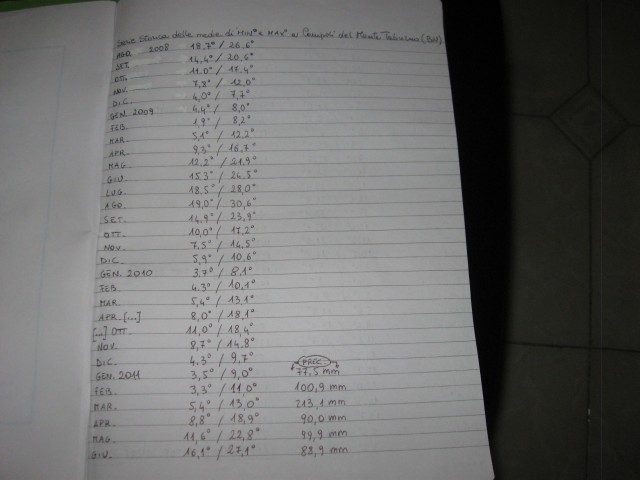 Serie Storica delle medie di MIN° e MAX° a Campoli del Monte Taburno (BN)
AGO. 2008 18,7° / 26,6°
SET. 14,4° / 20,6°
OTT. 11,0° / 17,4°
NOV. 7,8° / 12,0°
DIC. 4,0° / 7,7°
GEN. 2009 4,4° / 8,0°
FEB. 1,9° / 8,2°
MAR. 5,1° / 12,2°
APR. 9,3° / 16,7°
MAG. 12,2° / 21,9°
GIU. 15,3° / 24,5°
LUG. 18,5° / 28,0°
AGO. 19,0° / 30,6°
SET. 14,9° / 23,9°
OTT. 10,0° / 17,2°
NOV. 7,5° / 14,5°
DIC. 5,9° / 10,6°
GEN. 2010 3,7° / 8,1°
FEB. 4,3° / 10,1°
MAR. 5,4° / 13,1°
APR. [...] 8,0° / 18,1°
[...] OTT. 11,0° / 18,4°
NOV. 8,7° / 14,8°
DIC. 4,3° / 9,7° PREC.
GEN. 2011 3,5° / 9,0° 77,5 mm
FEB. 3,3° / 11,0° 100,9 mm
MAR. 5,4° / 13,0° 213,1 mm
APR. 8,8° / 18,9° 90,0 mm
MAG. 11,6° / 22,8° 99,9 mm
GIU. 16,1° / 27,1° 88,9 mm